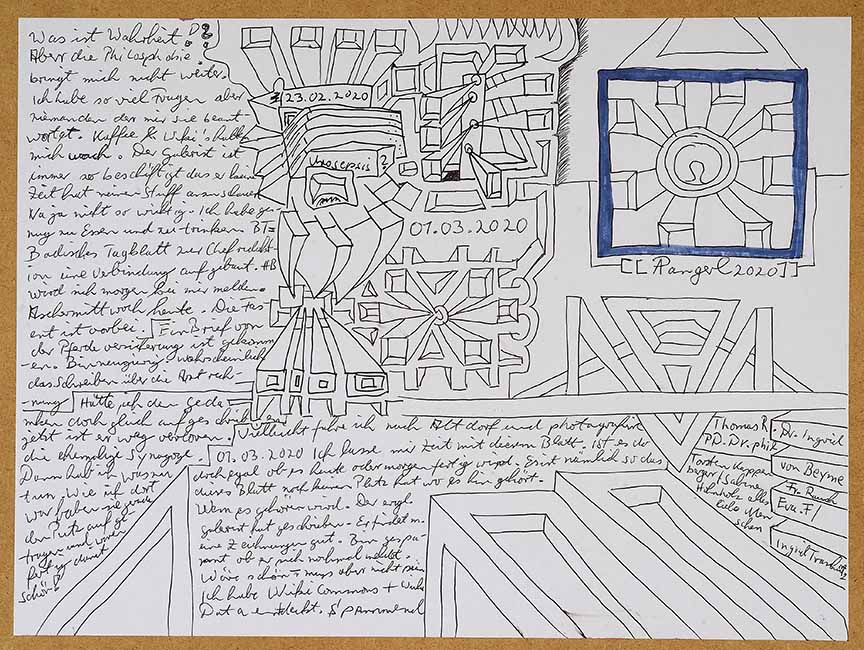 Was ist Wahrheit?
Aber die Philosphosie
bringt mich nicht weiter.
Ich habe so viel Fragen aber
niemanden der mir sie beant
wortet. Kaffee & Wiki's halten
mich wach. Der Galerist ist
immer so beschäftigt das er keine
Zeit hat meinen Stuff anzuschauen.
Na ja nicht so wichtig. Ich habe ge-
nug zu Essen und zu trinken. BT=
Badisches Tagblatt zur Chefredakt-
ion eine Verbindung aufgebaut. #B
wird sich morgen bei mir melden.
Aschermittwoch heute. Die Fas
ent ist vorbei. Ein Brief von
der Pferdeversicherung ist gekomm
-en. Bin neugierig. Wahrscheinlich
das Schreiben über die Arzt rech-
-nung Hätte ich den Geda
nken doch gleich aufgeschrieben
jetzt ist er weg verloren.
die ehemalige Synagoge.
Dann hab ich was zu
tun. Wie ich dort
war haben sie grade
den Putz auf ge
tragen und waren
fertig damit
schön!
23.02.2020
Urosepsis?
01.03.2020
[[Rangerl 2020]]
Vielleicht fahre ich nach Altdorf und photographire
01.03.2020 Ich lasse mir Zeit mit diesem Blatt. Ist es do
doch egal ob es heute oder morgen fertig wird. Es ist nämlich so das
dieses Blatt noch keinen Platz hat wo es hin gehört.
Wem es gehören wird. Der
galerist hat geschrieben. Er findet m.
eine Zeichnungen gut. Bin gespa-
nnt ob er sich nochmal meldet.
Wäre schön muss aber nicht sein
Ich habe Wiki Commons + Wiki
Data entdeckt. Spannnend
Thomas R.
PD. Dr. phil
Torsten Kopper
berger / Sabine
Helmholz alles
liebe Men
schen
Dr. Ingrid
von Beyme
Fr. Rauch
Eva. F/
Ingrid